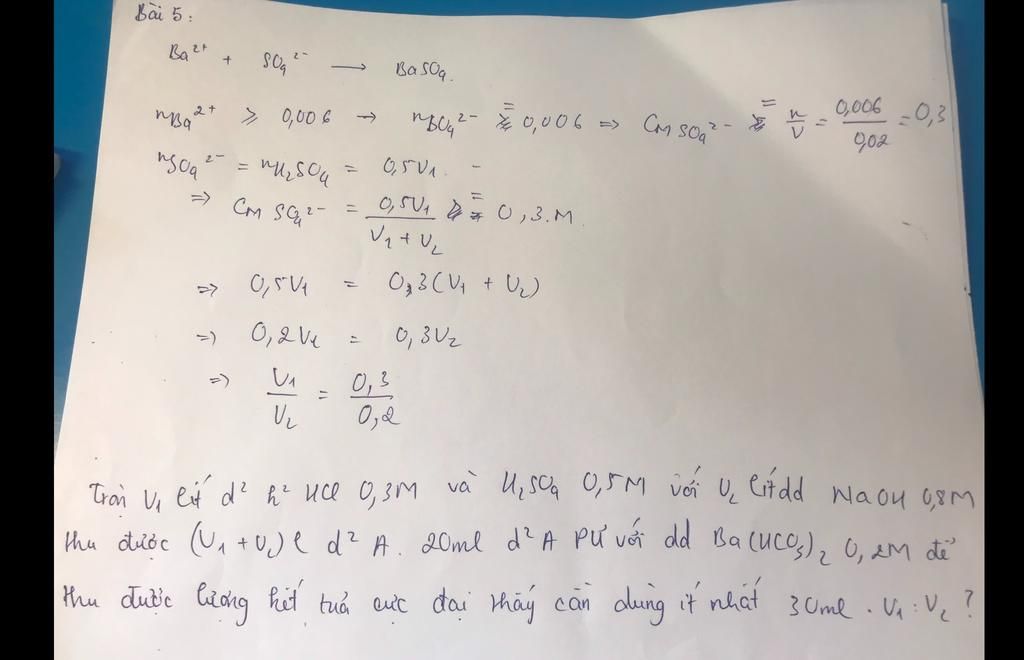 Bài 5:
Ba²⁺ + SO₄²⁻ ⟶ BaSO₄.
nBa²⁺ ⩾ 0,006 → nSO₄²⁻ = 0,006 ⇒ CM SO₄²⁻ = n/V = 0,006/0,02 = 0,3
nSO₄²⁻ = nH₂SO₄ = 0,5V₁. -
⇒ CM SO₄²⁻ = 0,5V₁/(V₁ + V₂) = 0,3.M
⇒ 0,5V₁ = 0,3(V₁ + V₂)
⇒ 0,2V₁ = 0,3V₂
⇒ V₁/V₂ = 0,3/0,2
Trộn V₁ lít d² h² HCl 0,3M và H₂SO₄ 0,5M với V₂ lít dd NaOH 0,8M
thu được (V₁ + V₂) l d² A. 20ml d² A PƯ với dd Ba(HCO₃)₂ 0,2M để
thu được lượng kết tuả cực đại thấy cần dùng ít nhất 30ml. V₁ : V₂ ?